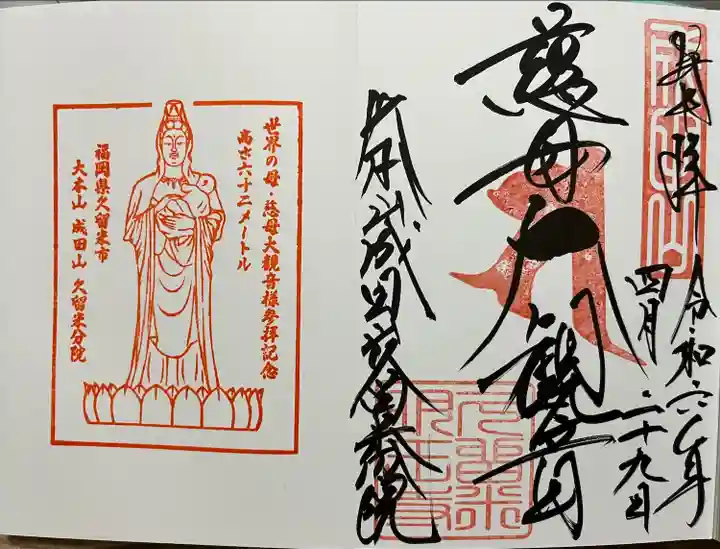 奉拝
令和六年
四月二十九日
慈母大観音
大本山成田山久留米分院
成田山
世界の母・慈母大観音様参拝記念
高さ六十二メートル
福岡県久留米市
大本山 成田山 久留米分院